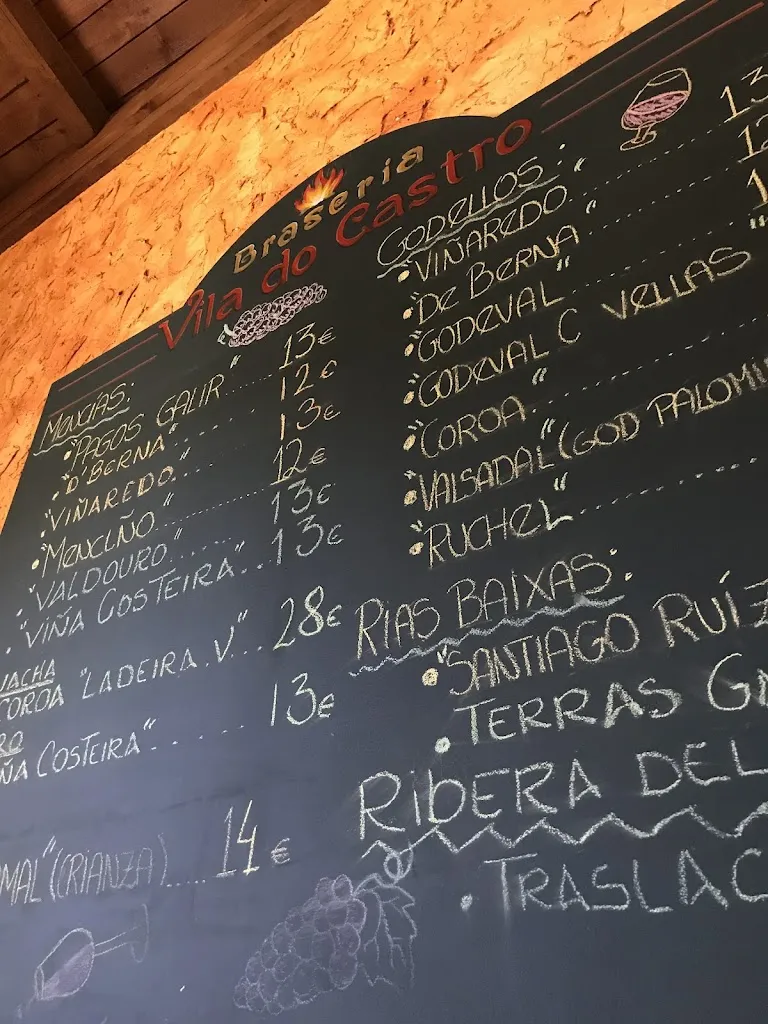 Braseria
Vila do Castro
MENCIAS:
"PAGOS GALIR" 13€
"D'BERNA" 12€
"VIÑAREDO" 13€
"MENCIÑO" 12€
"VALDOURO" 13€
"VIÑA COSTEIRA" 13€
COROA "LADEIRA V" 28€
COSTEIRA" 13€
(CRIANZA) 14€
GODELLOS:
"VIÑAREDO"
"DE BERNA"
"GODEVAL"
"GODEVAL C VELLAS"
"COROA"
"VALSADAL" (GOD
"RUCHEL"
RIAS BAIXAS:
"SANTIAGO RUÍZ
TERRAS
RIBERA DEL